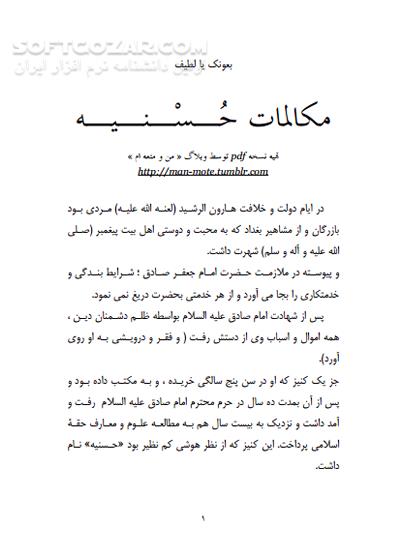 SOFTGOZAR.COM
اولین دانشنامه نرم افزار ایران
بعونک یا لطیف
مکالمات حُسْنیه
تهیه نسخه pdf توسط وبلاگ « من و متعه ام »
http://man-mote.tumblr.com
در ایام دولت و خلافت هارون الرشید (لعنه الله علیه) مردی بود
بازرگان و از مشاهیر بغداد که به محبت و دوستی اهل بیت پیغمبر (صلی
الله علیه و أله و سلم) شهرت داشت.
و پیوسته در ملازمت حضرت امام جعفر صادق ؛ شرایط بندگی و
خدمتکاری را بجا می آورد و از هر خدمتی بحضرت دریغ نمی نمود.
پس از شهادت امام صادق علیه السلام بواسطه ظلم دشمنان دین ،
همه اموال و اسباب وی از دستش رفت ( و فقر و درویشی به او روی
آورد).
جز یک کنیز که او در سن پنج سالگی خریده ، و به مکتب داده بود و
پس از آن بمدت ده سال در حرم محترم امام صادق علیه السلام رفت و
آمد داشت و نزدیک به بیست سال هم به مطالعه علوم و معارف حقهٔ
اسلامی پرداخت. این کنیز که از نظر هوشی کم نظیر بود «حسنیه» نام
داشت.
۱